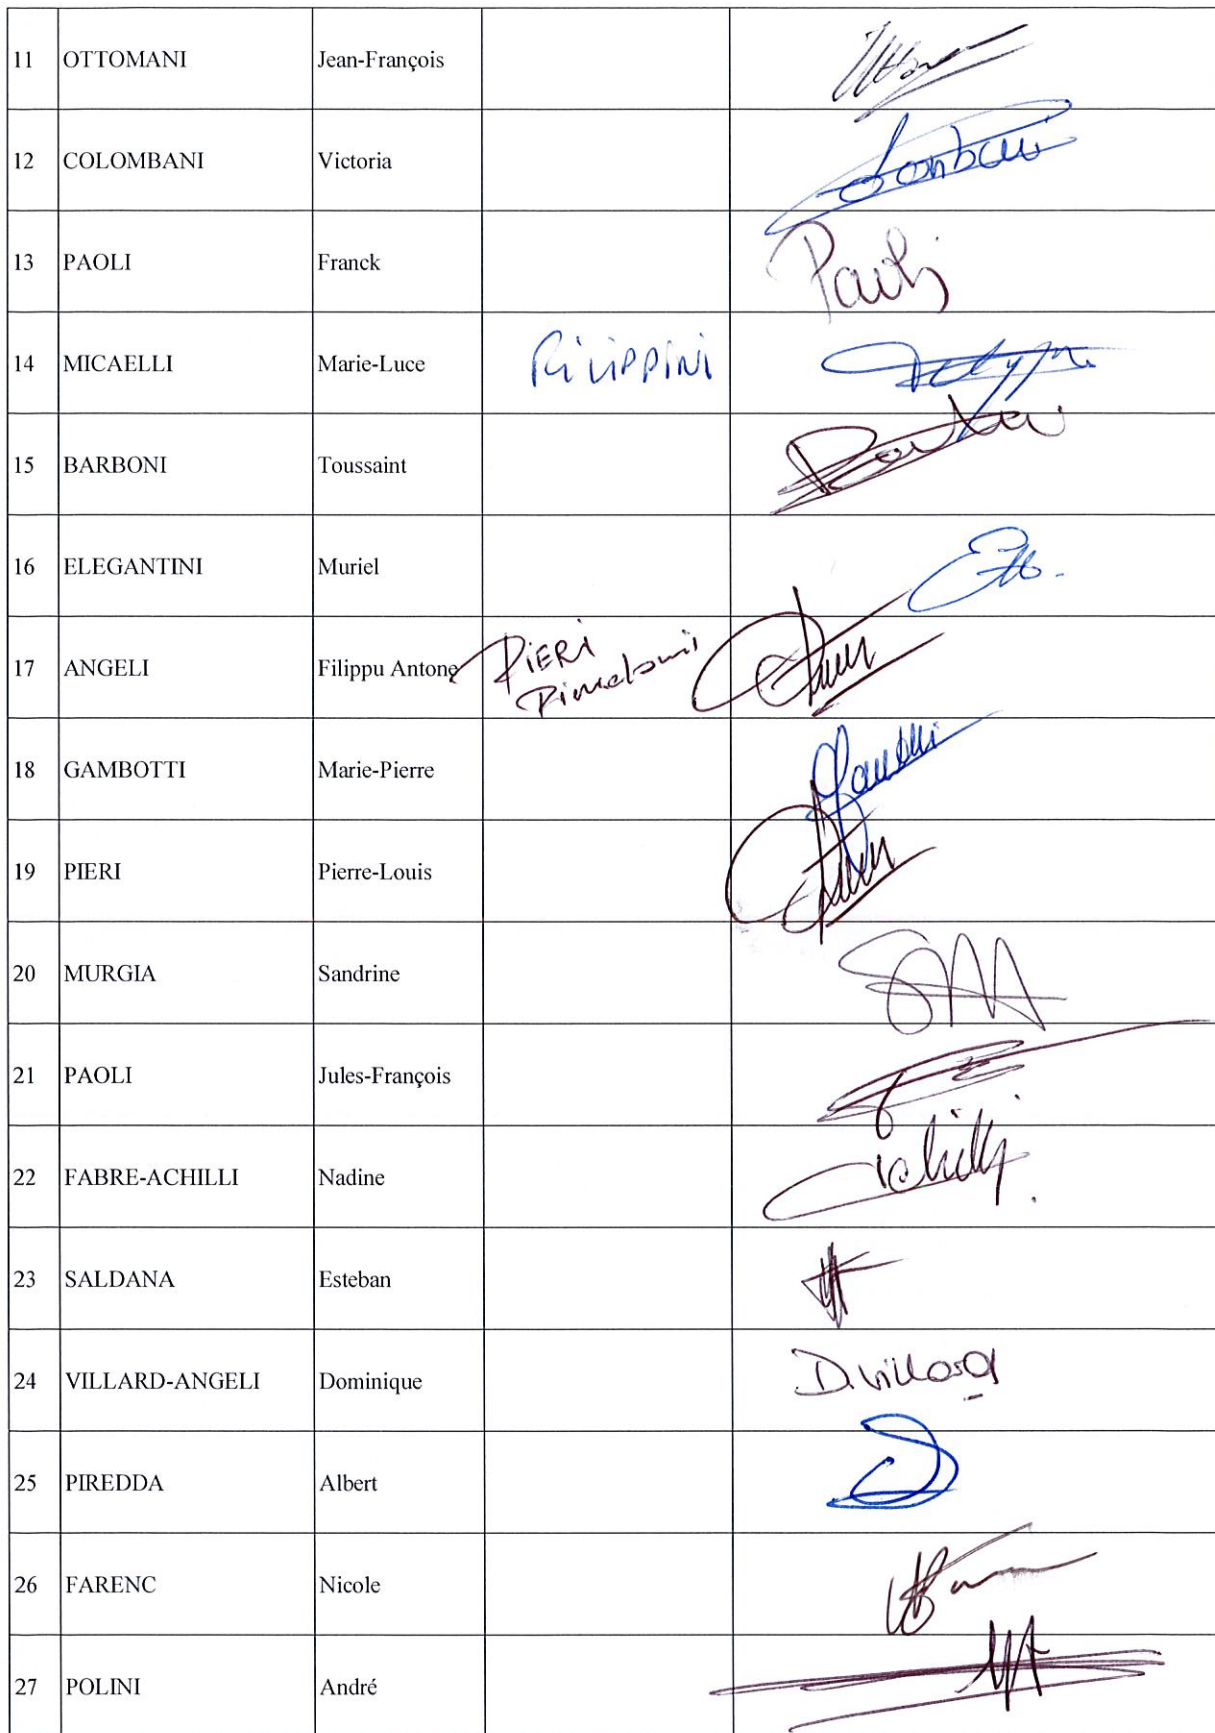 11 OTTOMANI Jean-François
12 COLOMBANI Victoria
13 PAOLI Franck Paoli
14 MICAELLI Marie-Luce FiLiPPiNi
15 BARBONI Toussaint
16 ELEGANTINI Muriel
17 ANGELI Filippu Antone PiERi
18 GAMBOTTI Marie-Pierre
19 PIERI Pierre-Louis
20 MURGIA Sandrine
21 PAOLI Jules-François
22 FABRE-ACHILLI Nadine
23 SALDANA Esteban
24 VILLARD-ANGELI Dominique D.Villard
25 PIREDDA Albert
26 FARENC Nicole
27 POLINI André